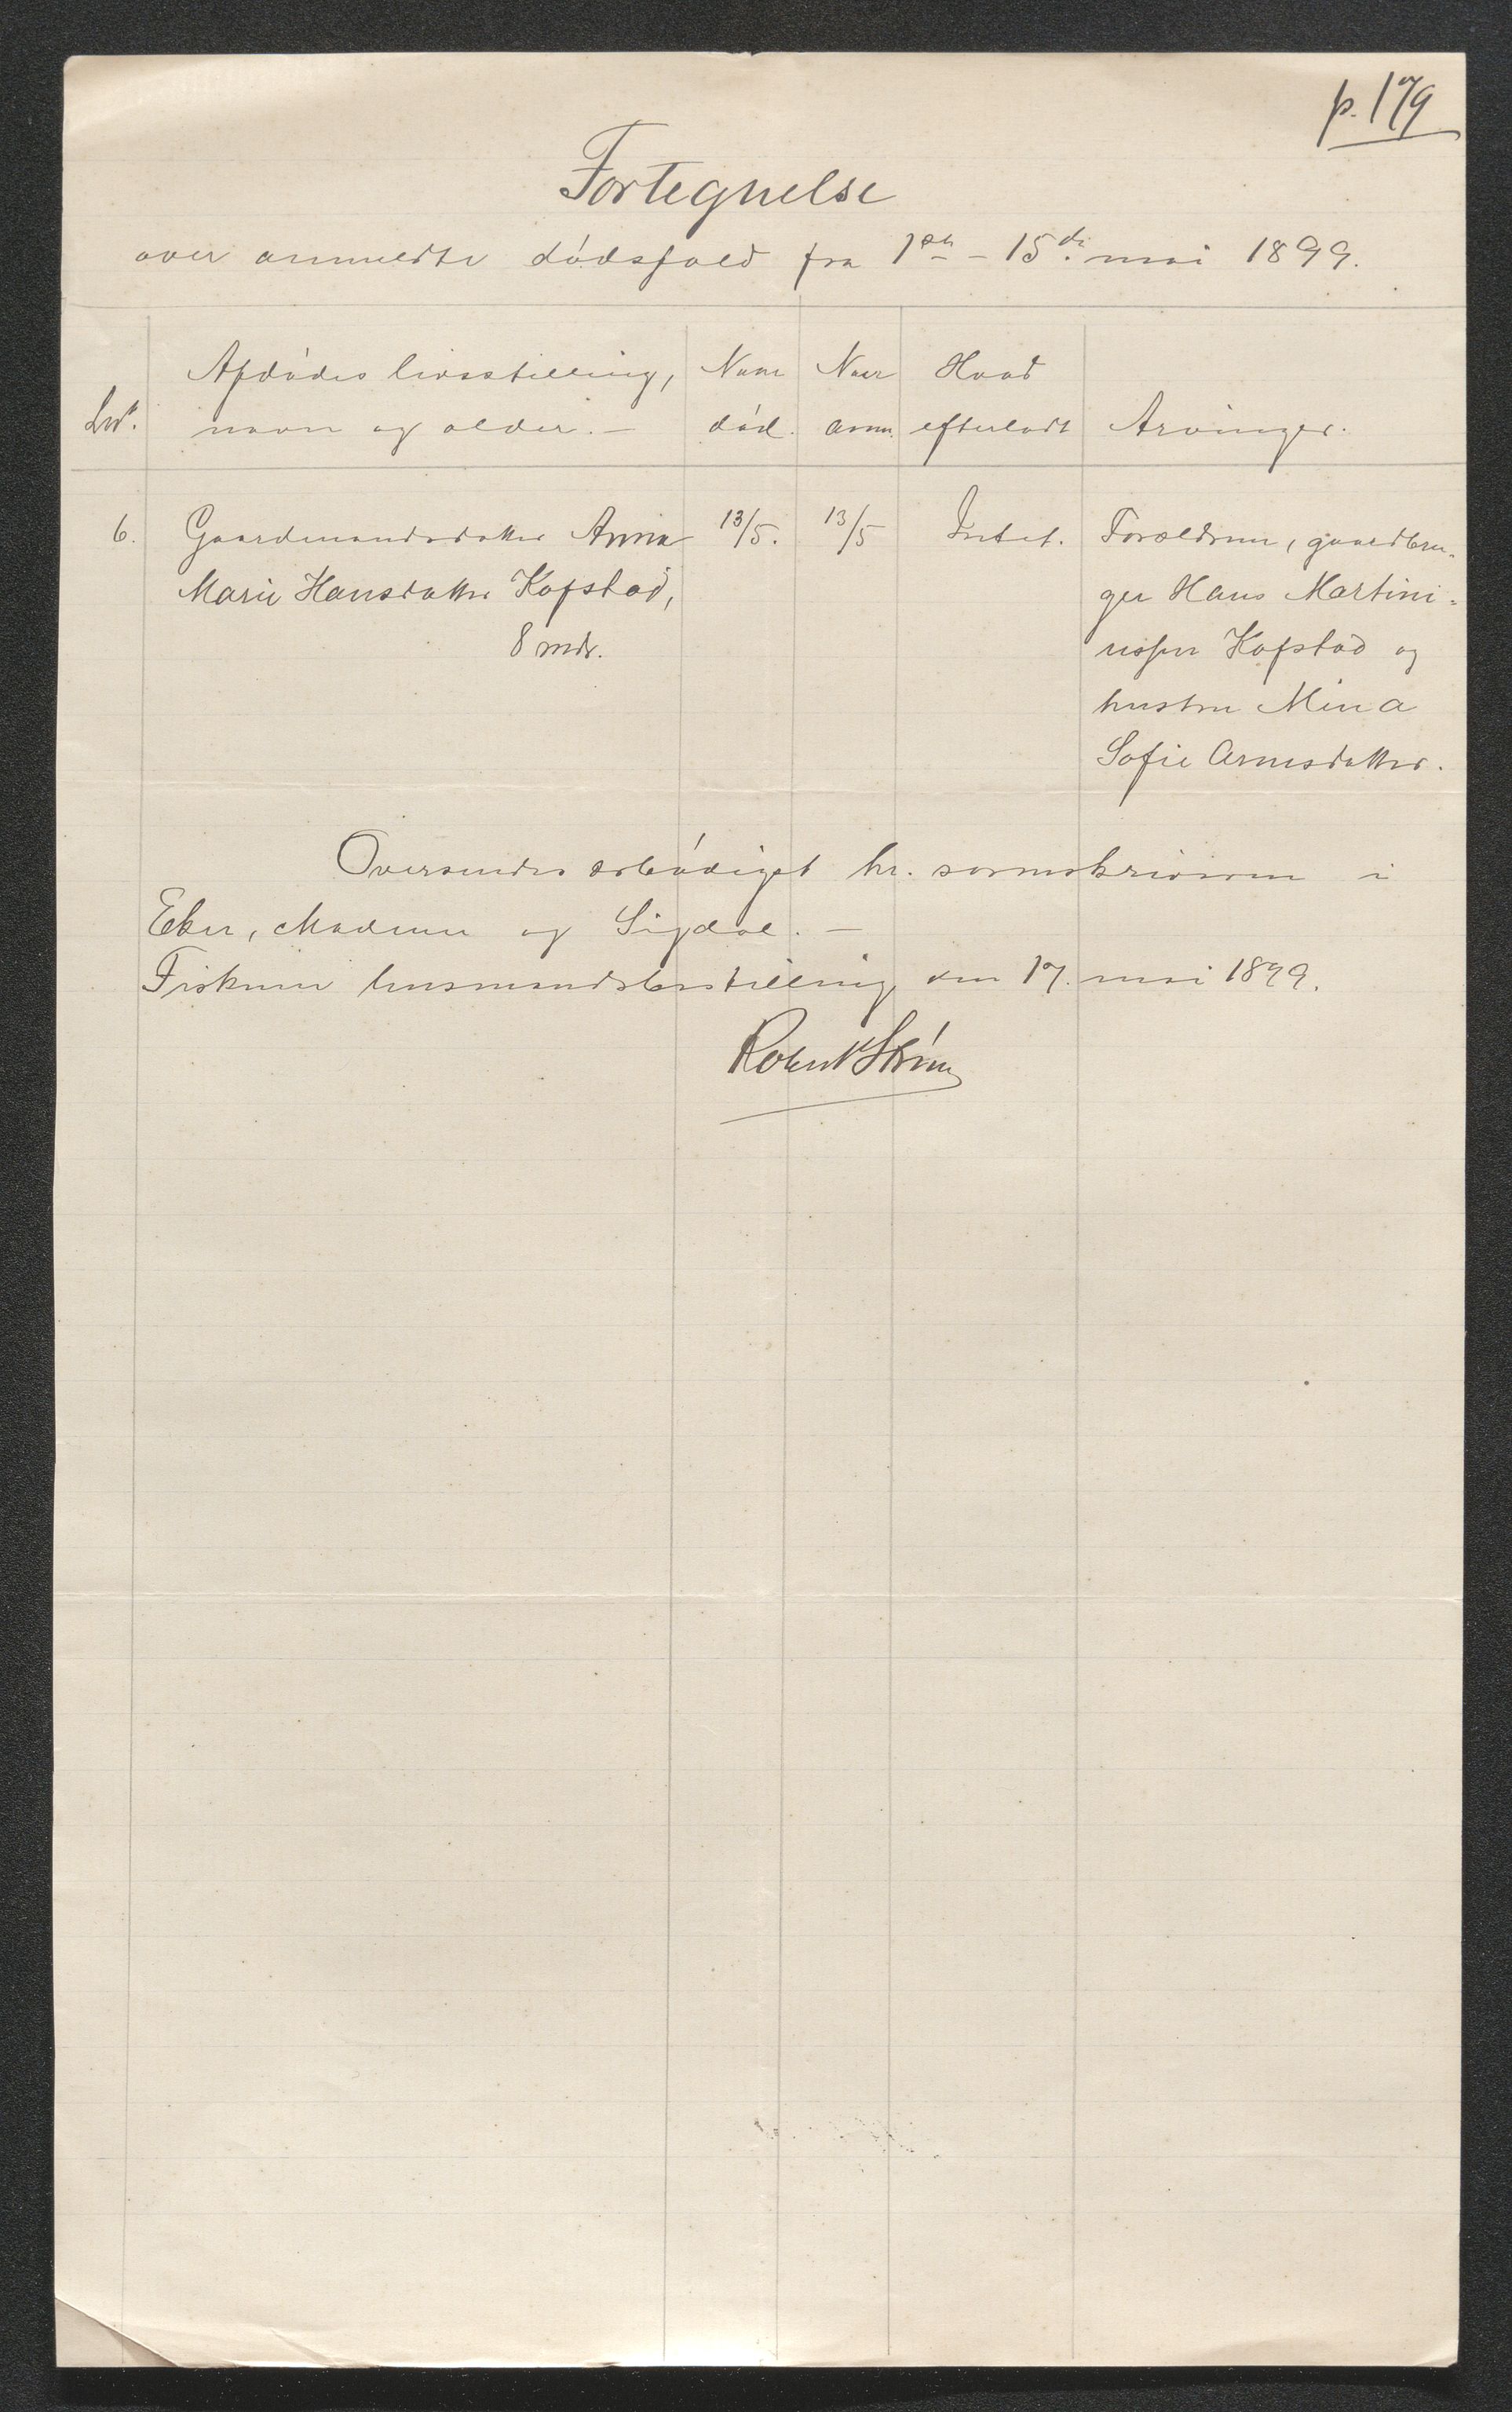 p. 179
Fortegnelse
over anmeldte dødsfald fra 1ste – 15de mai 1899.
Lnr. Afdødes livsstilling, navn og alder. – Naar død. Naar anm. Hvad efterladt Arvinger.
6. Gaardmandsdatter Anna 13/5. 13/5 Intet. Forældrene, gaardbru-
Marie Hansdatter Kopstad, ger Hans Martini-
8 mdr. ussen Kopstad og
hustru Mina
Sofie Arnesdatter.
Oversendes ærbødigst hr. sorenskriveren i
Eker, Modum og Sigdal. –
Fiskum lensmandsbestilling den 17. mai 1899.
Robert Strøm